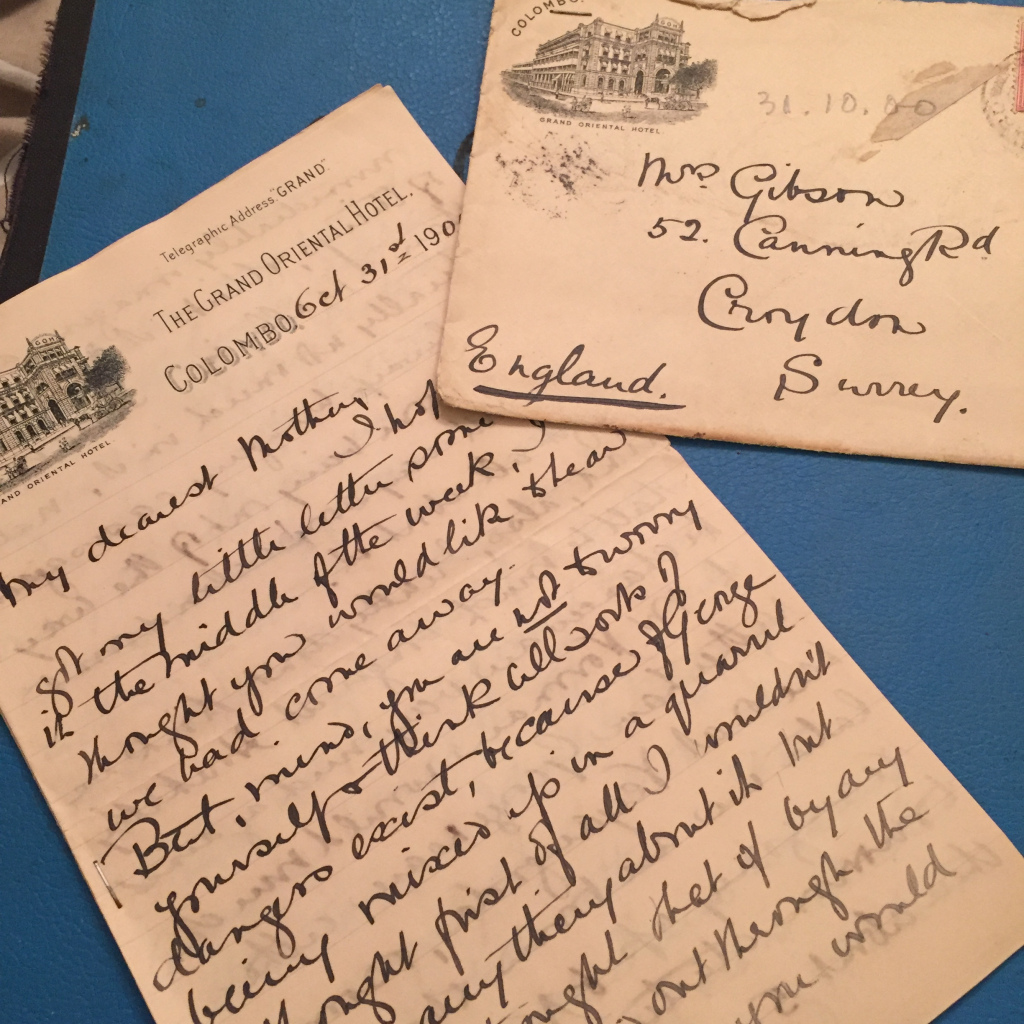 COLOMBO
GRAND ORIENTAL HOTEL
31.10.00
Mrs Gibson
52. Canning Rd
Croydon
Surrey.
England.
Telegraphic Address "GRAND"
THE GRAND ORIENTAL HOTEL.
COLOMBO, Oct 31st 190
GOH
AND ORIENTAL HOTEL.
My dearest Mother,
I ho
got my little letter some
in the middle of the week. I
thought you would like to hear
we had come away.
But, mind, you are not to worry
yourself & think all sorts of
dangers exist, because of George
being mixed up in a quarrel
thought first of all I wouldn't
any thing about it but
ought that if by any
out through the
you would